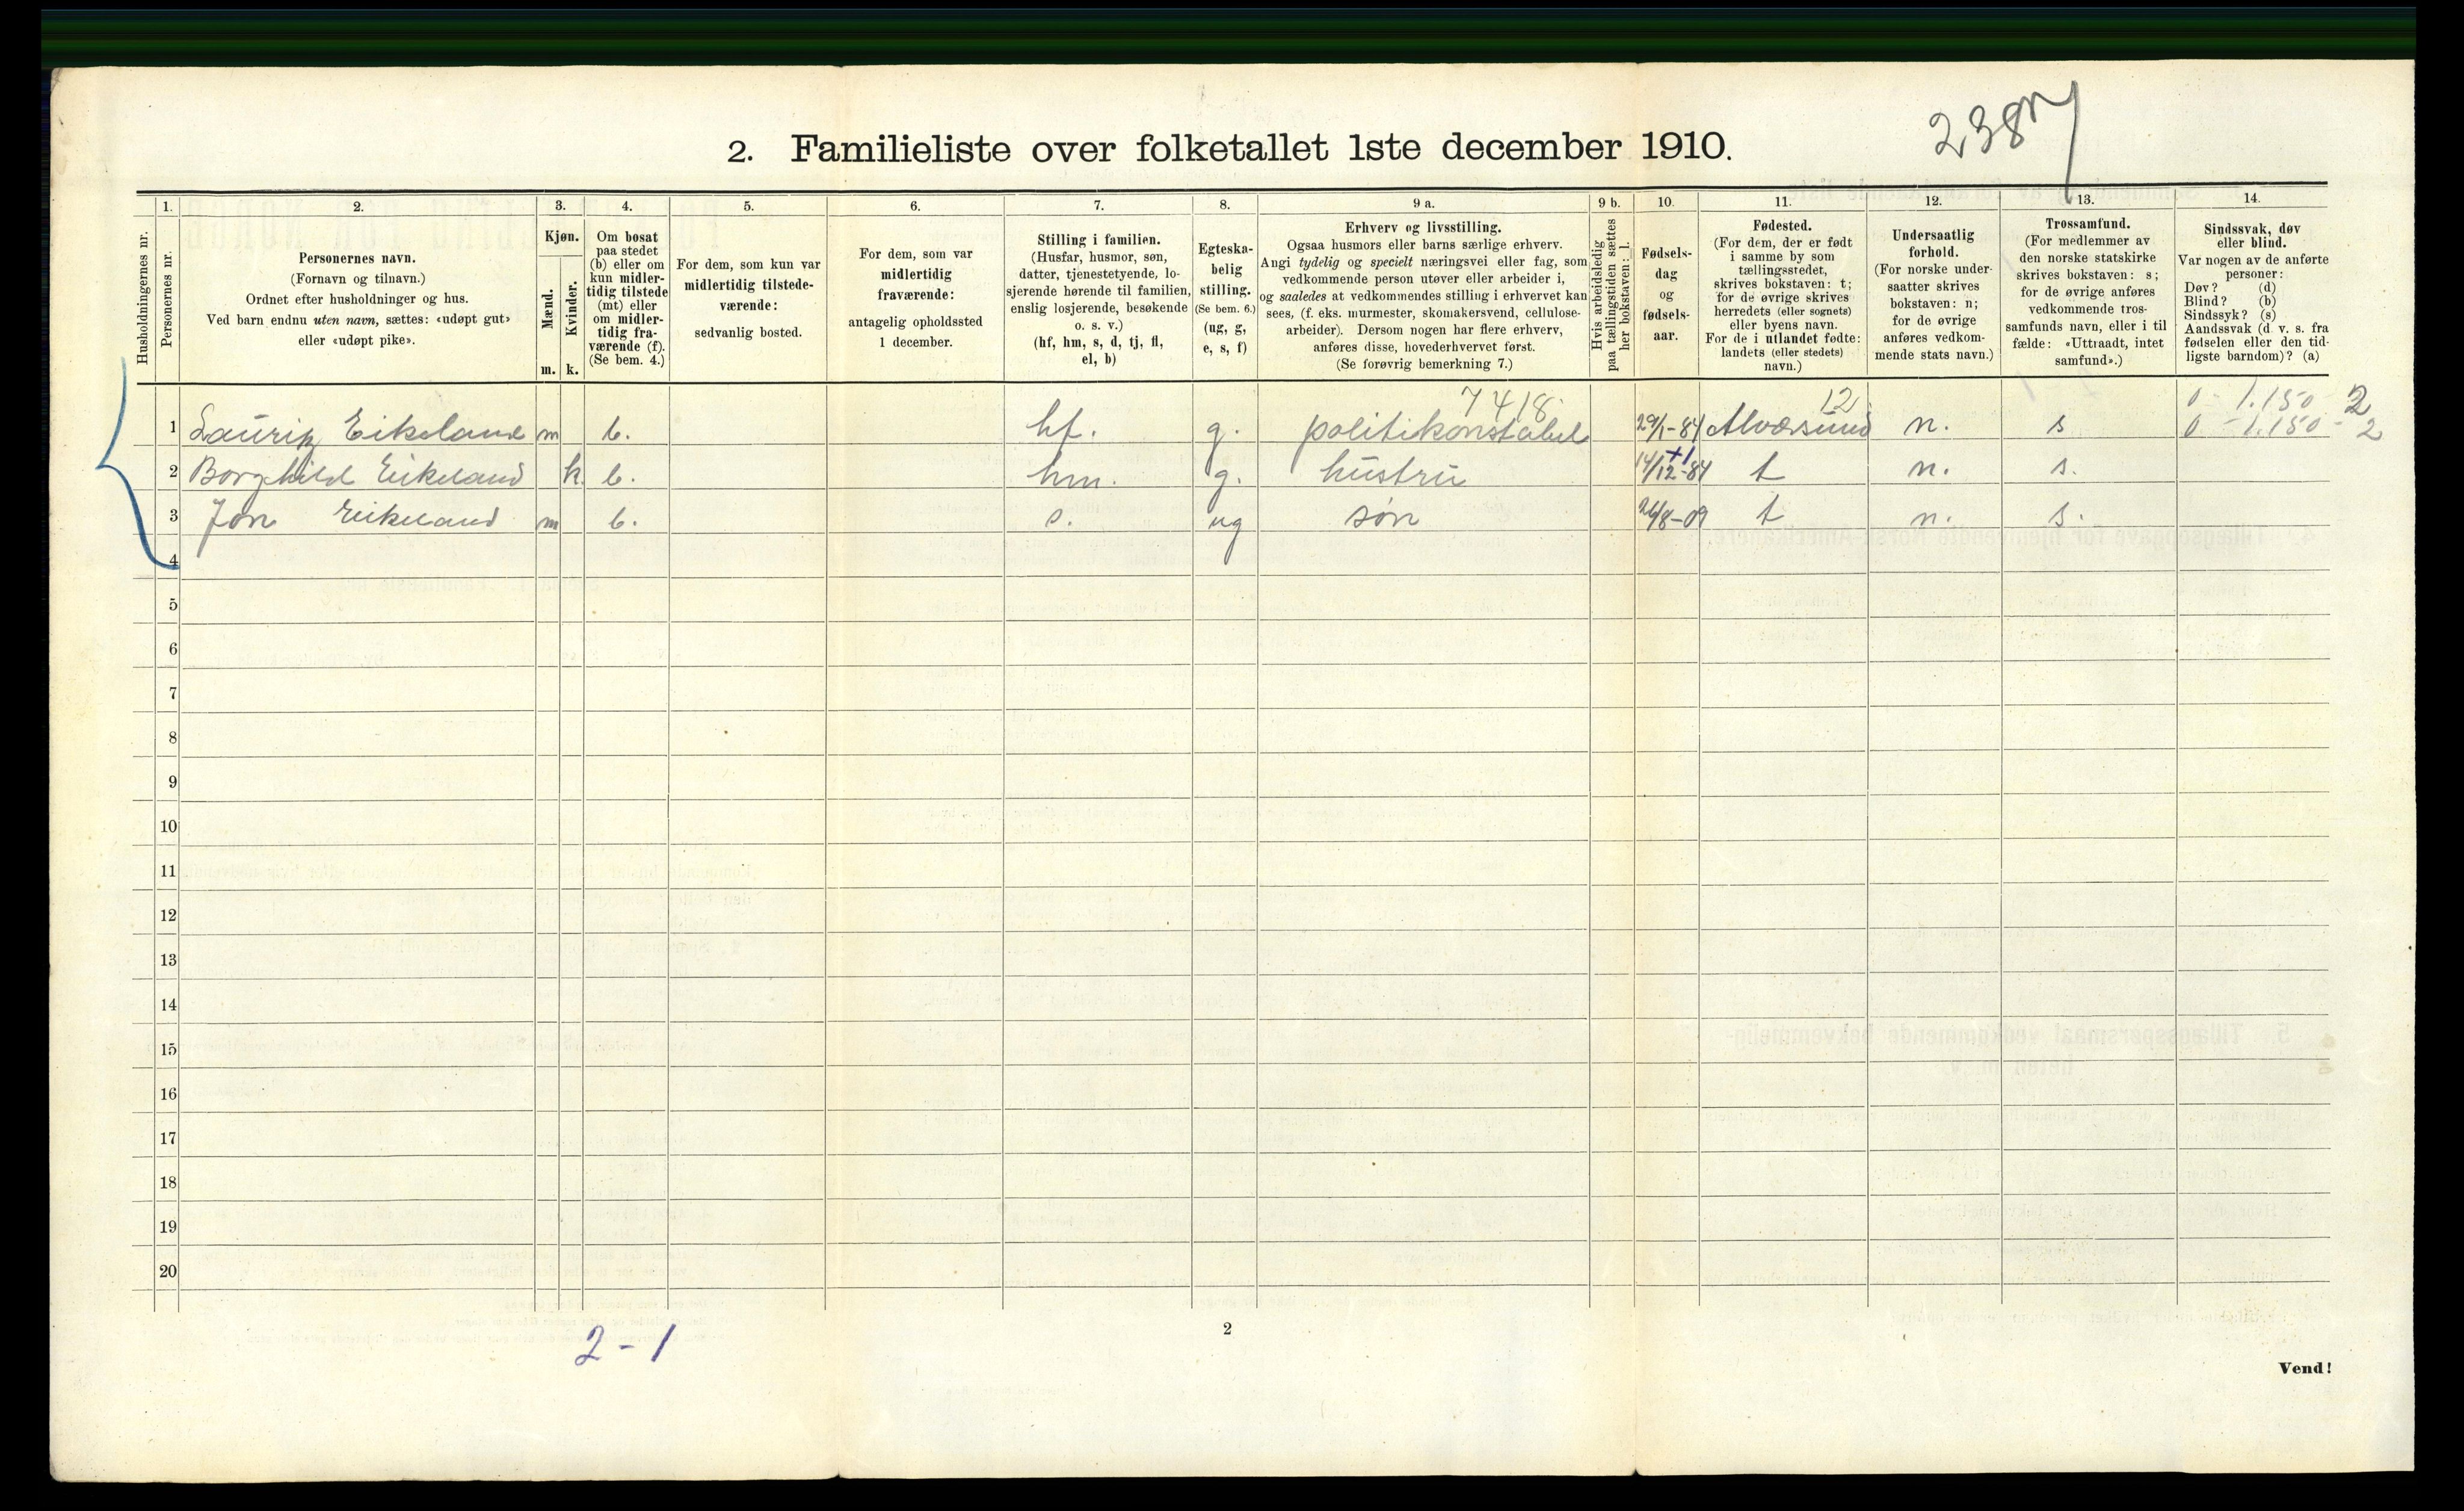 2387
2. Familieliste over folketallet 1ste december 1910.
Husholdningernes nr.
1.
Personernes nr.
2.
Personernes navn.
(Fornavn og tilnavn.)
Ordnet efter husholdninger og hus.
Ved barn endnu uten navn, sættes: «udøpt gut»
eller «udøpt pike».
3.
Kjøn.
Mænd.
m.
Kvinder.
k.
4.
Om bosat
paa stedet
(b) eller om
kun midler-
tidig tilstede
(mt) eller
om midler-
tidig fra-
værende (f).
(Se bem. 4.)
5.
For dem, som kun var
midlertidig tilstede-
værende:
sedvanlig bosted.
6.
For dem, som var
midlertidig
fraværende:
antagelig opholdssted
1 december.
7.
Stilling i familien.
(Husfar, husmor, søn,
datter, tjenestetyende, lo-
sjerende hørende til familien,
enslig losjerende, besøkende
o. s. v.)
(hf, hm, s, d, tj, fl,
el, b)
8.
Egteska-
belig
stilling.
(Se bem. 6.)
(ug, g,
e, s, f)
9 a.
Erhverv og livsstilling.
Ogsaa husmors eller barns særlige erhverv.
Angi tydelig og specielt næringsvei eller fag, som
vedkommende person utøver eller arbeider i,
og saaledes at vedkommendes stilling i erhvervet kan
sees, (f. eks. murmester, skomakersvend, cellulose-
arbeider). Dersom nogen har flere erhverv,
anføres disse, hovederhvervet først.
(Se forøvrig bemerkning 7.)
9 b.
Hvis arbeidsledig
paa tællingstiden sættes
her bokstaven: l.
10.
Fødsels-
dag
og
fødsels-
aar.
11.
Fødested.
(For dem, der er født
i samme by som
tællingsstedet,
skrives bokstaven: t;
for de øvrige skrives
herredets (eller sognets)
eller byens navn.
For de i utlandet fødte:
landets (eller stedets)
navn.)
12.
Undersaatlig
forhold.
(For norske under-
saatter skrives
bokstaven: n;
for de øvrige
anføres vedkom-
mende stats navn.)
13.
Trossamfund.
(For medlemmer av
den norske statskirke
skrives bokstaven: s;
for de øvrige anføres
vedkommende tros-
samfunds navn, eller i til
fælde: «Uttraadt, intet
samfund».)
14.
Sindssvak, døv
eller blind.
Var nogen av de anførte
personer:
Døv? (d)
Blind? (b)
Sindssyk? (s)
Aandssvak (d. v. s. fra
fødselen eller den tid-
ligste barndom)? (a)
7418 12 0 - 1.150 - 2
1 Lauritz Eikeland m b. hf. g. politikonstabel 29/1-84 Alværsund n. s 0 - 1.150 - 2
2 Borghild Eikeland k. b. hm. g. hustru 14/12-84 t n. s.
3 Jon Eikeland m b. s. ug søn 26/8-09 t n. s.
4
5
6
7
8
9
10
11
12
13
14
15
16
17
18
19
20
2-1
2
Vend!